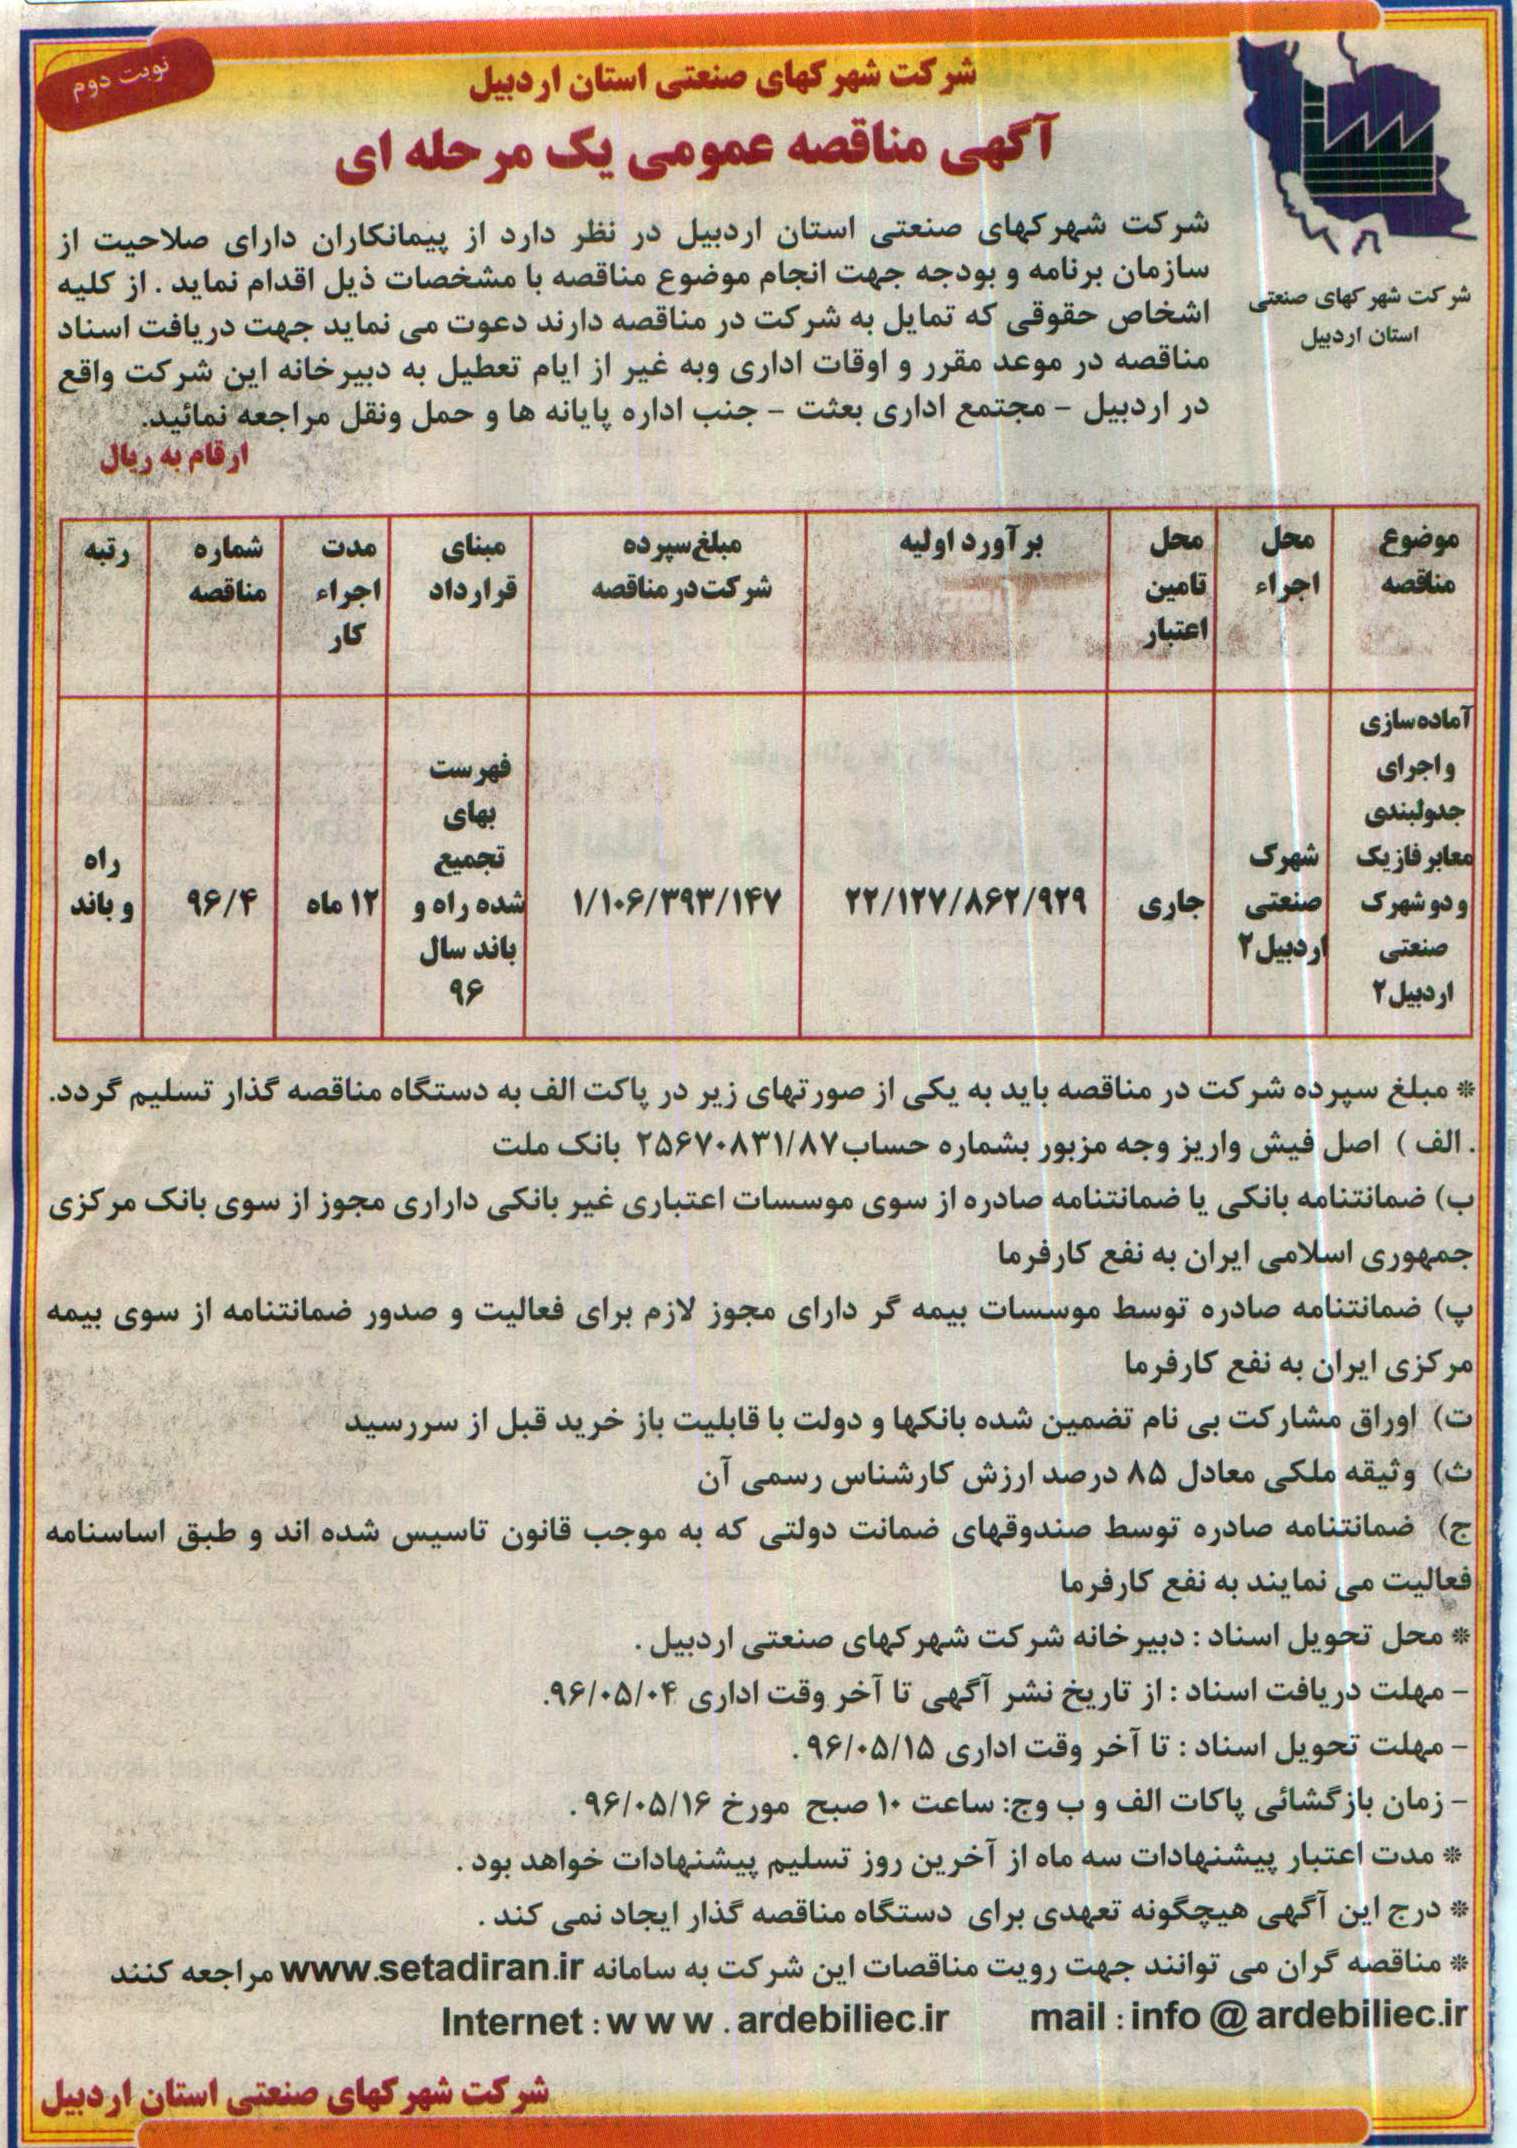 نوبت دوم
شرکت شهرکهای صنعتی استان اردبیل
آگهی مناقصه عمومی یک مرحله ای
شرکت شهرکهای صنعتی
استان اردبیل
شرکت شهرکهای صنعتی استان اردبیل در نظر دارد از پیمانکاران دارای صلاحیت از
سازمان برنامه و بودجه جهت انجام موضوع مناقصه با مشخصات ذیل اقدام نماید . از کلیه
اشخاص حقوقی که تمایل به شرکت در مناقصه دارند دعوت می نماید جهت دریافت اسناد
مناقصه در موعد مقرر و اوقات اداری وبه غیر از ایام تعطیل به دبیرخانه این شرکت واقع
در اردبیل - مجتمع اداری بعثت - جنب اداره پایانه ها و حمل ونقل مراجعه نمائید.
ارقام به ریال
موضوع
مناقصه
محل
اجراء
محل
تامین
اعتبار
برآورد اولیه
مبلغ سپرده
شرکت در مناقصه
مبنای
قرارداد
مدت
اجراء
کار
شماره
مناقصه
رتبه
آماده سازی
و اجرای
جدولبندی
معابر فاز یک
و دو شهرک
صنعتی
اردبیل۲
شهرک
صنعتی
اردبیل۲
جاری
۲۲/۱۲۷/۸۶۲/۹۲۹
۱/۱۰۶/۳۹۳/۱۴۷
فهرست
بهای
تجمیع
شده راه و
باند سال
۹۶
۱۲ ماه
۹۶/۴
راه
و باند
* مبلغ سپرده شرکت در مناقصه باید به یکی از صورتهای زیر در پاکت الف به دستگاه مناقصه گذار تسلیم گردد.
. الف ) اصل فیش واریز وجه مزبور بشماره حساب۲۵۶۷۰۸۳۱/۸۷ بانک ملت
ب) ضمانتنامه بانکی یا ضمانتنامه صادره از سوی موسسات اعتباری غیر بانکی داراری مجوز از سوی بانک مرکزی
جمهوری اسلامی ایران به نفع کارفرما
پ) ضمانتنامه صادره توسط موسسات بیمه گر دارای مجوز لازم برای فعالیت و صدور ضمانتنامه از سوی بیمه
مرکزی ایران به نفع کارفرما
ت) اوراق مشارکت بی نام تضمین شده بانکها و دولت با قابلیت باز خرید قبل از سررسید
ث) وثیقه ملکی معادل ۸۵ درصد ارزش کارشناس رسمی آن
ج) ضمانتنامه صادره توسط صندوقهای ضمانت دولتی که به موجب قانون تاسیس شده اند و طبق اساسنامه
فعالیت می نمایند به نفع کارفرما
* محل تحویل اسناد : دبیرخانه شرکت شهرکهای صنعتی اردبیل .
- مهلت دریافت اسناد : از تاریخ نشر آگهی تا آخر وقت اداری ۹۶/۰۵/۰۴.
- مهلت تحویل اسناد : تا آخر وقت اداری ۹۶/۰۵/۱۵ .
- زمان بازگشائی پاکات الف و ب وج: ساعت ۱۰ صبح مورخ ۹۶/۰۵/۱۶ .
* مدت اعتبار پیشنهادات سه ماه از آخرین روز تسلیم پیشنهادات خواهد بود .
* درج این آگهی هیچگونه تعهدی برای دستگاه مناقصه گذار ایجاد نمی کند .
* مناقصه گران می توانند جهت رویت مناقصات این شرکت به سامانه www.setadiran.ir مراجعه کنند
Internet : w w w . ardebiliec.ir mail : info @ ardebiliec.ir
شرکت شهرکهای صنعتی استان اردبیل